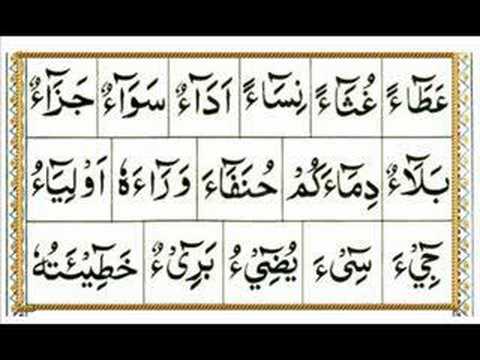 عَطَآءً غُثَآءً نِسَآءً اَدَآءٌ سَوَآءٌ جَزَآءٌ
بَلَآءٌ دِمَآءَكُمْ حُنَفَآءَ وَرَآءَهٗ اَوْلِيَآءُ
جِیْٓءَ سِیْٓءَ يُضِیْٓءُ بَرِیْٓءٌ خَطِيْٓئَتُهٗ